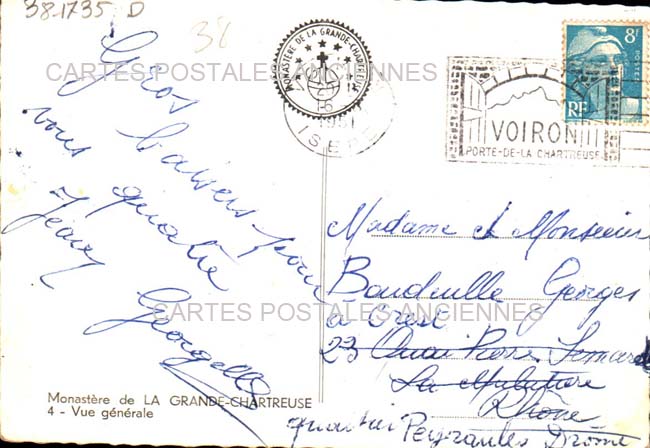 38-1735 D
38
MONASTÈRE DE LA GRANDE-CHARTREUSE
CARTES POSTALES ANCIENNES
1951
ISERE
VOIRON
PORTE-DE-LA CHARTREUSE
8F
POSTES
RF
Gros
baisers pour
vous quatre
Jeany Georgette
Madame et Monsieur
Baudeulle Georges
à Crest
23 Quai Pierre Semard
La Mulatière
Rhône
quartier Peyrambes Drôme
CARTES POSTALES ANCIENNES
Monastère de LA GRANDE-CHARTREUSE
4 - Vue générale